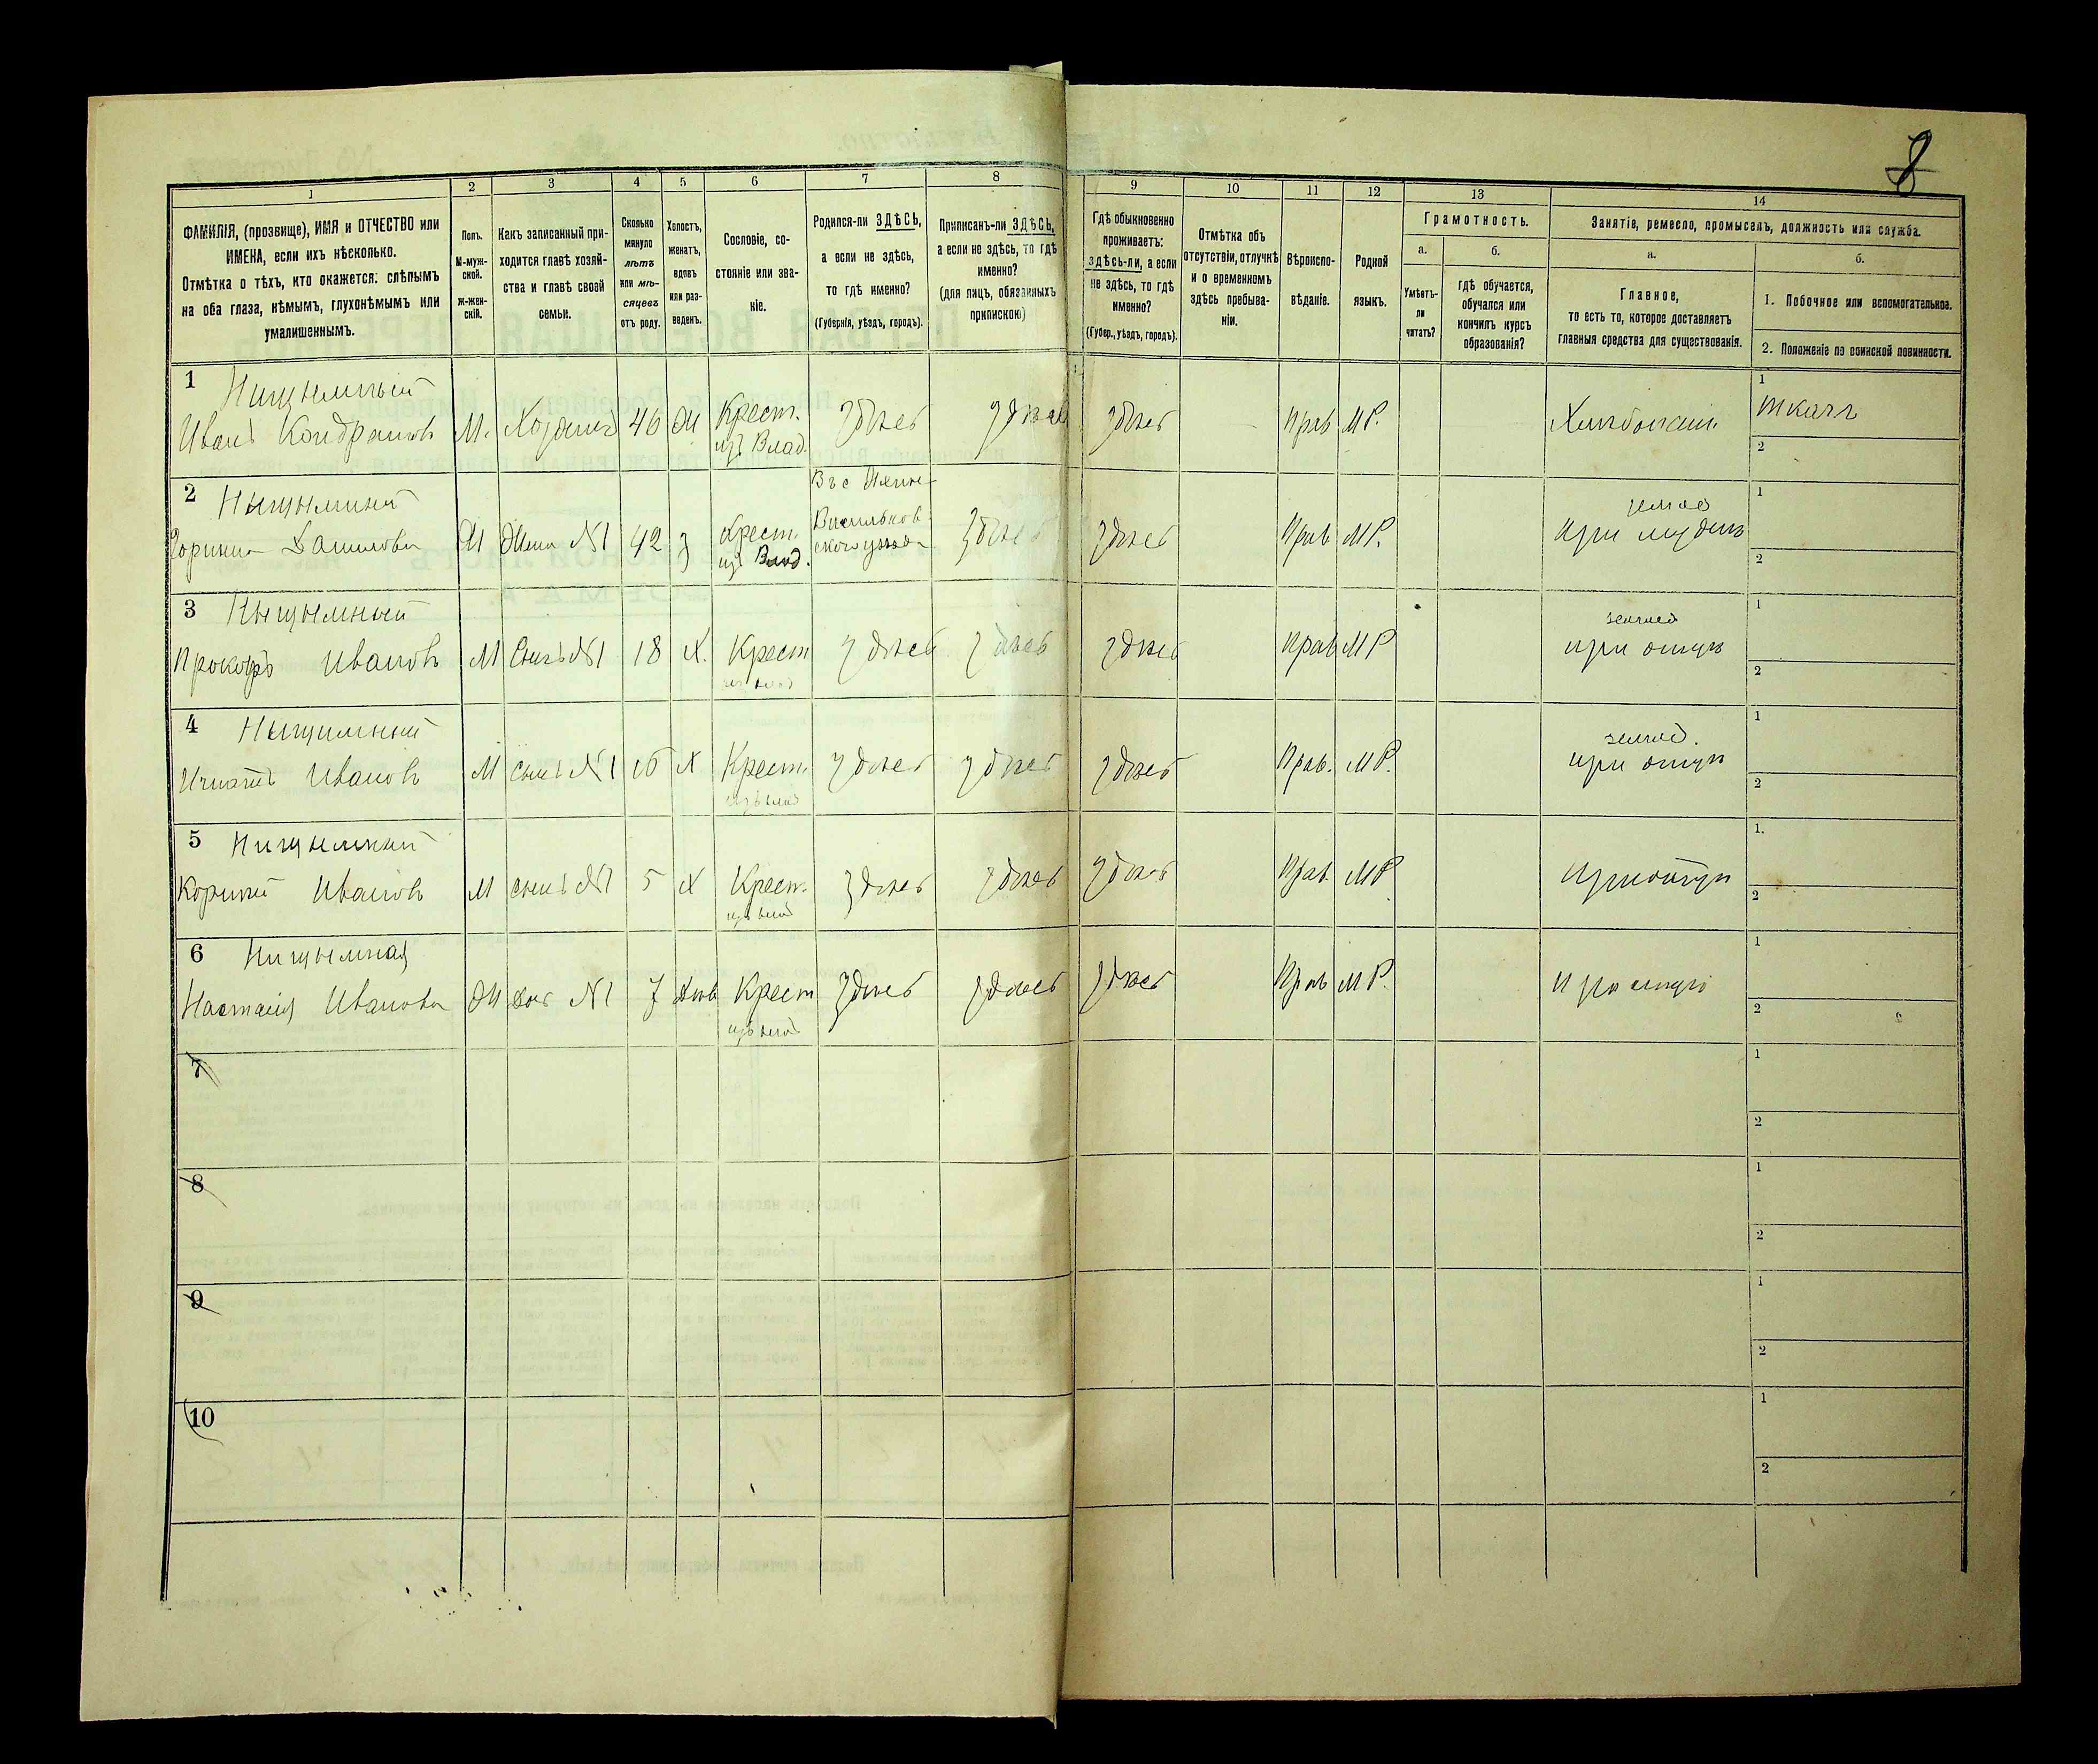 8
1 2 3 4 5 6 7 8 9 10 11 12 13 14
ФАМИЛІЯ, (прозвище), ИМЯ и ОТЧЕСТВО или
ИМЕНА, если ихъ нѣсколько.
Отмѣтка о тѣхъ, кто окажется: слѣпымъ
на оба глаза, нѣмымъ, глухонѣмымъ или
умалишеннымъ.
Полъ.
М-муж-
ской.
Ж-жен-
скій.
Какъ записанный при-
ходится главѣ хозяй-
ства и главѣ своей
семьи.
Сколько
минуло
лѣтъ
или мѣ-
сяцевъ
отъ роду.
Холостъ,
женатъ,
вдовъ
или раз-
веденъ.
Сословіе, со-
стояніе или зва-
ніе.
Родился-ли ЗДѢСЬ,
а если не здѣсь,
то гдѣ именно?
(Губернія, уѣздъ, городъ).
Приписанъ-ли ЗДѢСЬ,
а если не здѣсь, то гдѣ
именно?
(для лицъ, обязанныхъ
припискою)
Гдѣ обыкновенно
проживаетъ:
здѣсь-ли, а если
не здѣсь, то гдѣ
именно?
(Губер., уѣздъ, городъ).
Отмѣтка объ
отсутствіи, отлучкѣ
и о временномъ
здѣсь пребыва-
ніи.
Вѣроиспо-
вѣданіе.
Родной
языкъ.
Грамотность.
а.
Умѣетъ-
ли
читать?
б.
гдѣ обучается,
обучался или
кончилъ курсъ
образованія?
Занятіе, ремесло, промыселъ, должность или служба.
а.
Главное,
то есть то, которое доставляетъ
главныя средства для существованія.
б.
1. Побочное или вспомогательное.
2. Положеніе по воинской повинности.
1
Иванъ Кондратовъ М. Хозяинъ 46 Ж Крест. здѣсь здѣсь здѣсь Прав М Р. Хлѣбопаш. 1 ткачъ
изъ Влад. 2
2 Въ с
Данилова Ж Жена №1 42 З Крест. Васильков здѣсь здѣсь Прав М Р. при 1
изъ Влад. скаго уѣзда 2
3 землед
Прокофъ Ивановъ М Сынъ №1 18 Х. Крест здѣсь здѣсь здѣсь Прав М Р при отцѣ 1
изъ влад 2
4 землед.
Игнатъ Ивановъ М сынъ №1 Х Крест. здѣсь здѣсь здѣсь Прав. М Р. при отцѣ 1
изъ влад 2
5
Ивановъ М сынъ №1 5 Х Крест. здѣсь здѣсь здѣсь Прав. М Р. при отцѣ 1.
изъ влад 2
6
Настасія Иванова Ж доч №1 7 Крест здѣсь здѣсь здѣсь Прав М Р. при отцѣ 1
изъ влад 2
7 1
2
8 1
2
9 1
2
10 1
2